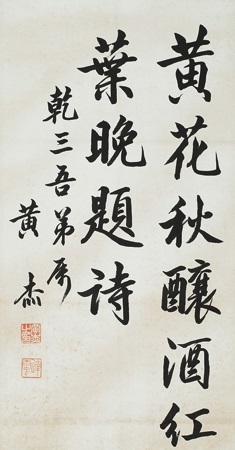 黄花秋釀酒紅
葉晚題詩
乾三吾弟属
黄杰